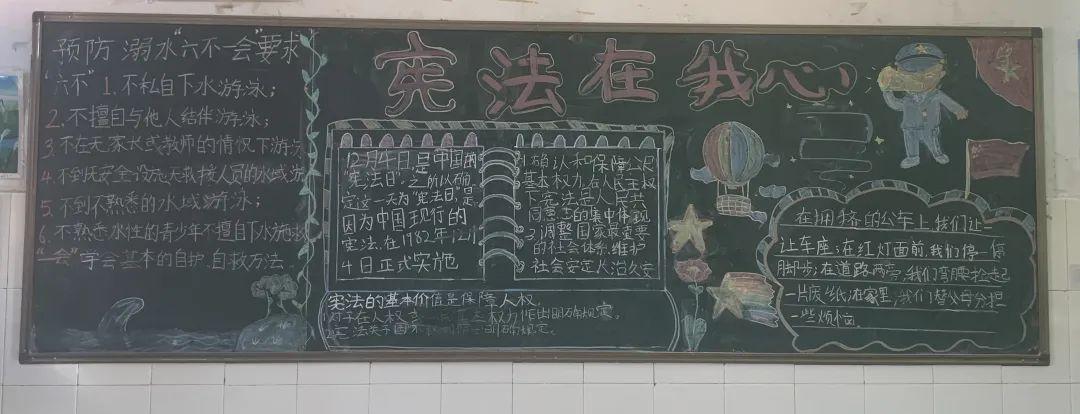 预防溺水"六不一会"要求
"六不"1.不私自下水游泳；
2.不擅自与他人结伴游泳；
3.不在无家长或教师的情况下游泳
4.不到无安全设施无救援人员的水域游
5.不到不熟悉的水域游泳；
6.不熟悉水性的青少年不擅自下水施救
"一会"学会基本的自护、自救方法
宪法在我心
12月4日，是中国的
"宪法日"，之所以确
定这一天为"宪法日"，是
因为中国现行的
宪法，在1982年12月
4日正式实施
1.确认和保障公民
基本权力，在人民主权
下宪法是人民共
同意志的集中体现
2.调整国家最重要
的社会体系，维护
社会安定长治久安
宪法的基本价值是保障人权。
权力作出明确规定。
宪法关于国家
明确规定。
在拥挤的公车上，我们让一
让车座；在红灯面前，我们停一停
脚步；在道路两旁，我们弯腰捡起
一片废纸；在家里，我们替父母分担
一些烦恼。